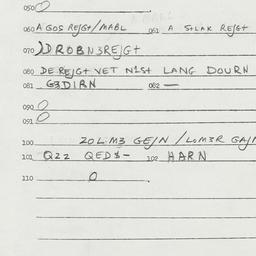 050 O
060 A GOS REJGT/MABL 061 A StLAK REJGT
070 DROBN3REJGT
080 DE REJGT VET N1St LANG DOURN
081 G3DIRN 082 —
090 O
091 O
100 ZOLM3 GEJN /LOM3R GAJ
101 Q22 QED$- 102 HARN
110 O